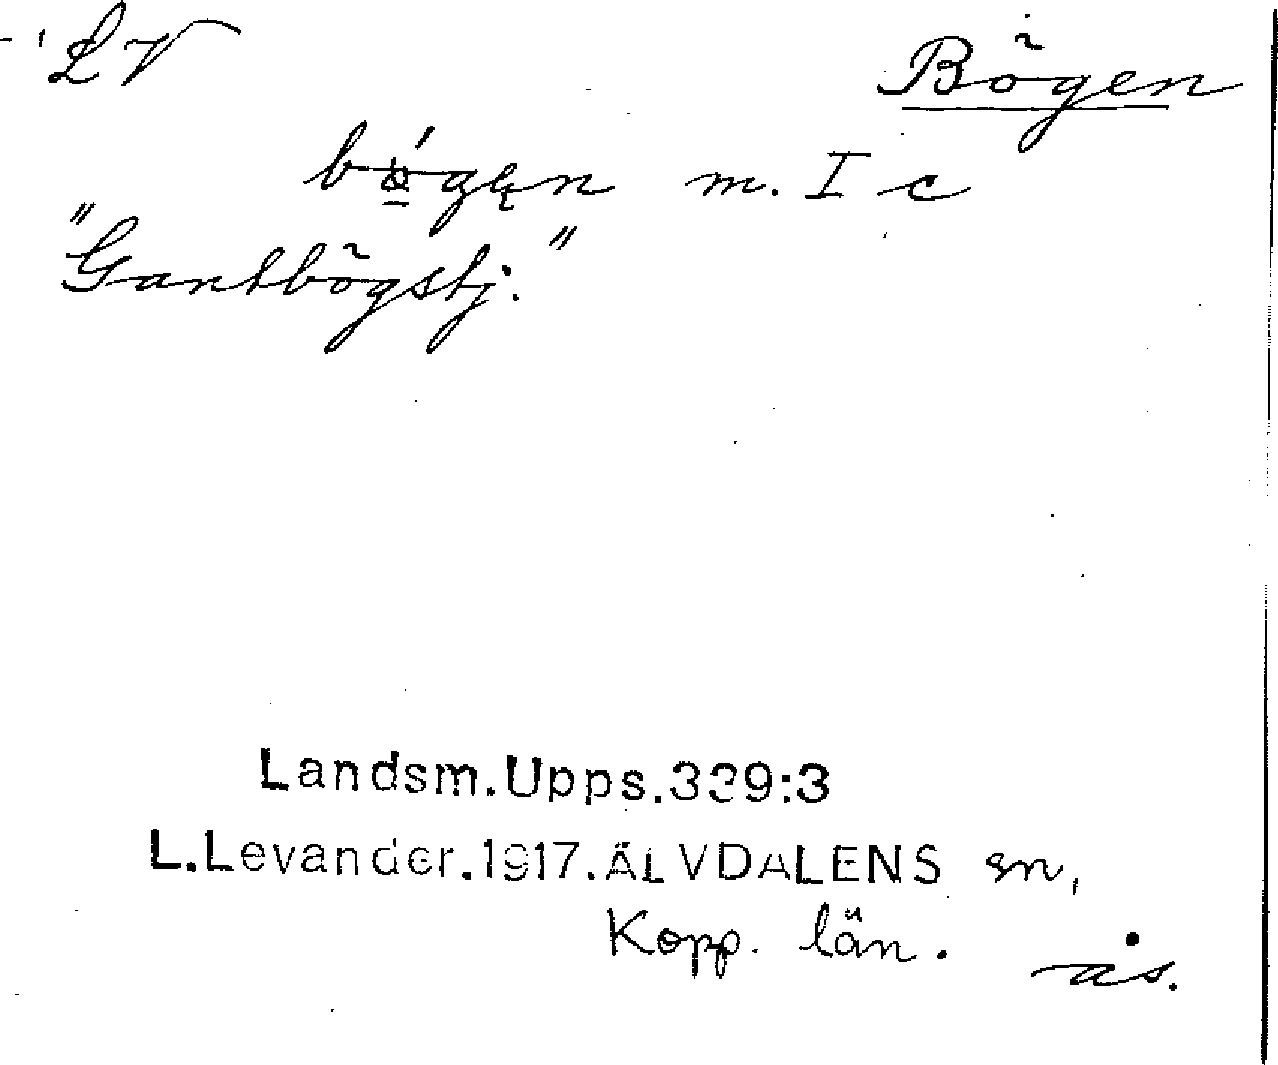 LV
Bögen
bøgęn m. I c
"Gantbögstj."
Landsm.Upps.339:3
L.Levander.1917.ÄLVDALENS sn,
Kopp. län.
ås.